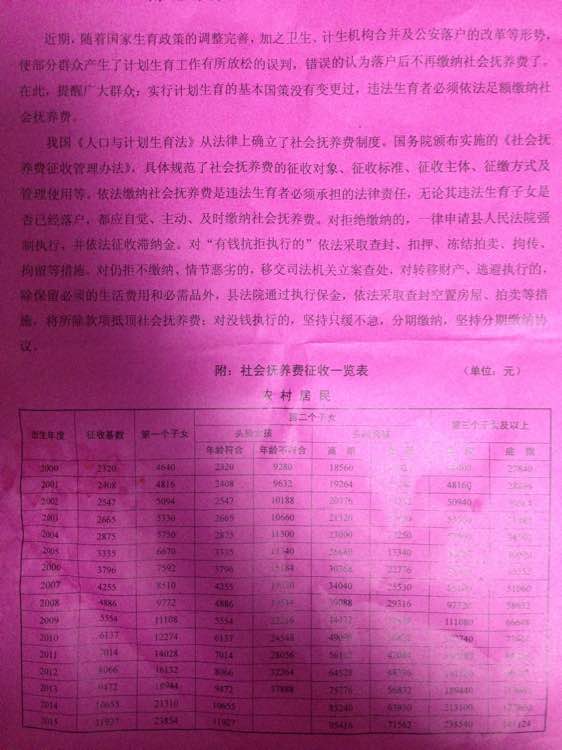 近期，随着国家生育政策的调整完善，加之卫生、计生机构合并及公安落户的改革等形势，
使部分群众产生了计划生育工作有所放松的误判，错误的认为落户后不再缴纳社会抚养费了。
在此，提醒广大群众：实行计划生育的基本国策没有变更过，违法生育者必须依法足额缴纳社
会抚养费。
我国《人口与计划生育法》从法律上确立了社会抚养费制度。国务院颁布实施的《社会抚
养费征收管理办法》，具体规范了社会抚养费的征收对象、征收标准、征收主体、征缴方式及
管理使用等。依法缴纳社会抚养费是违法生育者必须承担的法律责任，无论其违法生育子女是
否已经落户，都应自觉、主动、及时缴纳社会抚养费。对拒绝缴纳的，一律申请县人民法院强
制执行，并依法征收滞纳金。对“有钱抗拒执行的”依法采取查封、扣押、冻结拍卖、拘传、
拘留等措施。对仍拒不缴纳，情节恶劣的，移交司法机关立案查处，对转移财产、逃避执行的，
除保留必须的生活费用和必需品外，县法院通过执行保金，依法采取查封空置房屋、拍卖等措
施，将所除款项抵顶社会抚养费；对没钱执行的，坚持只缓不急，分期缴纳，坚持分期缴纳协
议。
附：社会抚养费征收一览表 （单位：元）
农 村 居 民
出生年度 征收基数 第一个子女 第二个子女 第三个子女及以上
年龄符合 年龄不符合
2000 2320 4640 2320 9280 18560 27840
2001 2408 4816 2408 9632 19264 48160
2002 2547 5094 2547 10188 20376 50940
2003 2665 5330 2665 10660 21320
2004 2875 5750 2875 11500 23000
2005 3335 6670 3335 13340 26680 13340
2006 3796 7592 3796 15184 30368 22776
2007 4255 8510 4255 34040 25530 51060
2008 4886 9772 4886 39088 29316 97720 58632
2009 5554 11108 5554 111080 66648
2010 6137 12274 6137 24548
2011 7014 14028 7014 28056
2012 8066 16132 8066 32264 64528
2013 9472 18944 9472 37888 75776 56832 189440
2014 10655 21310 10655 85240 63930 213100
2015 11927 23854 11927 95416 71562 238540